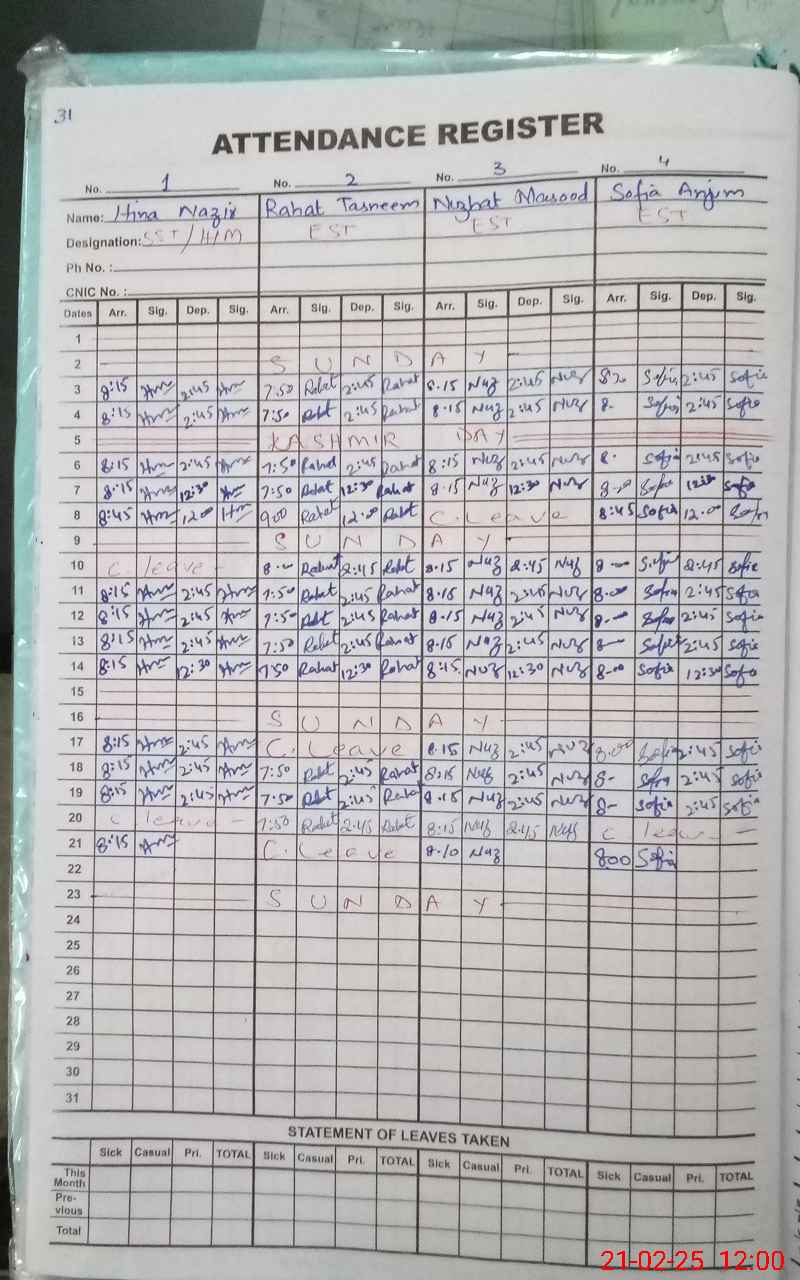 31
ATTENDANCE REGISTER
No. 1 No. 2 No. 3 No. 4
Name: Hina Nazir Rahat Tasneem Nuzhat Masood Sofia Anjum
Designation: SST/HM EST EST EST
Ph No. :
CNIC No. :
Dates Arr. Sig. Dep. Sig. Arr. Sig. Dep. Sig. Arr. Sig. Dep. Sig. Arr. Sig. Dep. Sig.
1
2 SUNDAY
3 8:15 2:45 7:50 Rahat 2:45 Rahat 8.15 Nuz 2:45 Nuz Sofia 2:45 Sofia
4 8:15 2:45 7:50 Rahat 2:45 Rahat 8.15 Nuz 2:45 Nuz 8- Sofia 2:45 Sofia
5 KASHMIR DAY
6 8:15 2:45 7:50 Rahat 2:45 Rahat 8:15 Nuz 2:45 Nuz 8- Sofia 2:45 Sofia
7 8:15 12:30 7:50 Rahat 12:30 Rahat 8.15 Nuz 12:30 Nuz 8-00 Sofia Sofia
8 8:45 12:00 9:00 Rahat 12:00 Rahat C.Leave 8:45 Sofia 12.00 Sofia
9 SUNDAY
10 C. leave - 8-00 Rahat 2:45 Rahat 8.15 Nuz 2:45 Nuz 8-00 Sofia 2:45 Sofia
11 8:15 2:45 7:50 Rahat 2:45 Rahat 8.15 Nuz 2:45 Nuz 8-00 Sofia 2:45 Sofia
12 8:15 2:45 7:50 Rahat 2:45 Rahat 8.15 Nuz 2:45 Nuz 8-00 Sofia 2:45 Sofia
13 8:15 2:45 7:50 Rahat 2:45 Rahat 8.15 Nuz 2:45 Nuz 8- Sofia 2:45 Sofia
14 8:15 12:30 7:50 Rahat 12:30 Rahat 8:15 Nuz 12:30 Nuz 8-00 Sofia 12:30 Sofia
15
16 SUNDAY
17 8:15 2:45 C.Leave 8.15 Nuz 2:45 Nuz 8-00 Sofia 2:45 Sofia
18 8:15 2:45 7:50 Rahat 2:45 Rahat 8:15 Nuz 2:45 Nuz 8- Sofia 2:45 Sofia
19 8:15 2:45 7:50 Rahat 2:45 Rahat 8.15 Nuz 2:45 Nuz 8- Sofia 2:45 Sofia
20 C leave - 7:50 Rahat 2:45 Rahat 8:15 Nuz 2:45 Nuz C leave -
21 8:15 C.Leave 8.10 Nuz 800 Sofia
22
23 SUNDAY
24
25
26
27
28
29
30
31
STATEMENT OF LEAVES TAKEN
Sick Casual Pri. TOTAL Sick Casual Pri. TOTAL Sick Casual Pri. TOTAL Sick Casual Pri. TOTAL
This Month
Pre-vious
Total
21-02-25 12:00